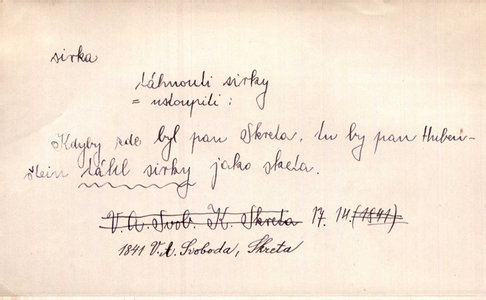 sirka
táhnouti sirky
= ustoupiti :
Kdyby zde byl pan Skreta, tu by pan Huben-
štein táhl sirky jako sketa.
V. A. Svob. K. Skreta 17. 14. (1841)
1841 V. A. Svoboda, Skreta